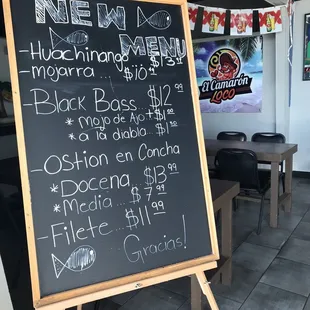 NEW
MENU
-Huachinango
-mojarra...
-Black Bass... $12.99
*mojo de Ajo +$1
*a la diabla...
-Ostion en Concha
*Docena $13.99
*Media... $7.99
-Filete... $11.99
Gracias!
El CAMARÓN
LOCO